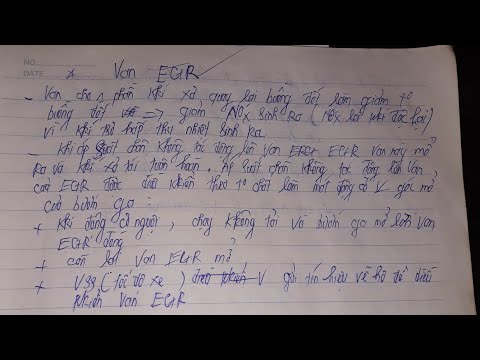 NO.
DATE
Van EGR
- Van cho 1 phần khí xả quay lại buồng đốt làm giảm t°
buồng đốt => giảm NOx sinh ra (NOx là khí độc hại)
vì khí trơ hấp thụ nhiệt sinh ra.
- khi áp suất chân không tác động lên van EGR van này mở
ra và khí xả tái tuần hoàn. áp suất chân không tác động lên van
của EGR được điều khiển theo t° chất làm mát động cơ V gói mở
của bướm ga:
+ khi động cơ nguội, chạy không tải và bướm ga mở lớn van
EGR đóng
+ còn lại van EGR mở
+ (tốc độ xe) V gửi tín hiệu về hộ để điều
khiển van EGR